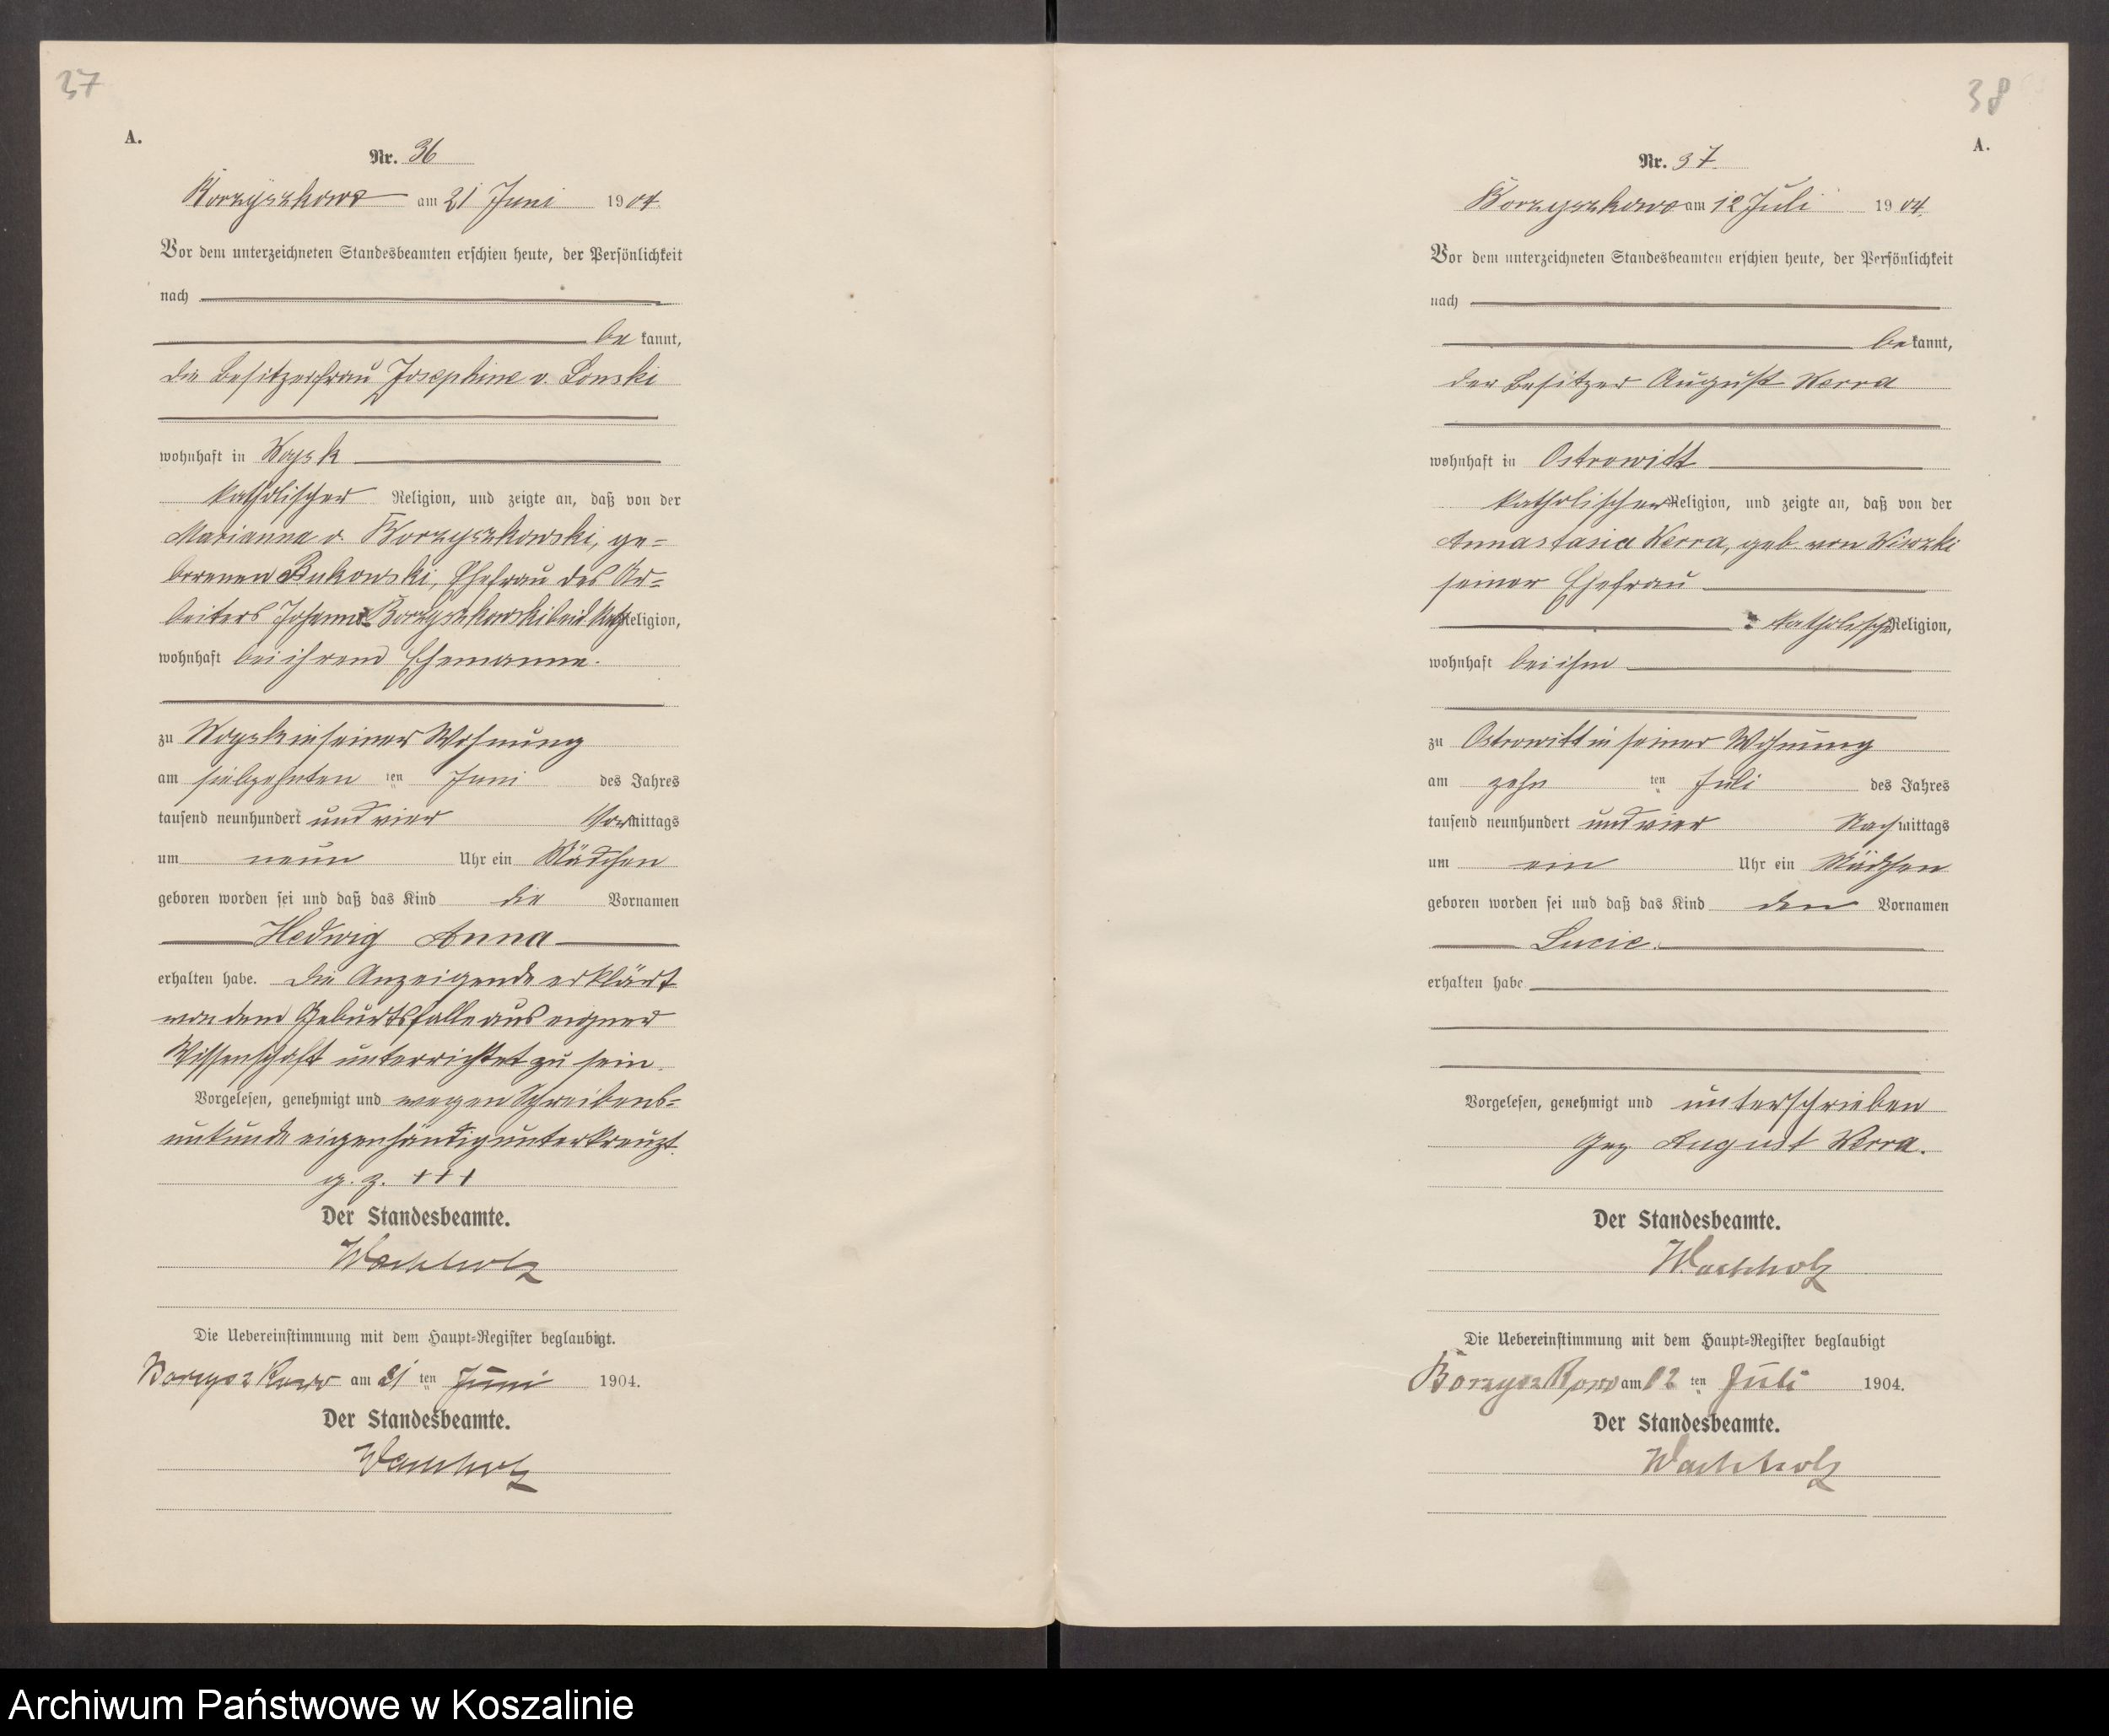 37
A.
Nr. 36
Borzyszkowo am 21 Juni 1904
Vor dem unterzeichneten Standesbeamten erschien heute, der Persönlichkeit
nach
be kannt,
die Besitzerfrau Josephine v. Lonski
wohnhaft in
katholischer Religion, und zeigte an, daß von der
Marianna v. Borzyszkowski, ge-
borenen Bukowski, Ehefrau des Ar-
beiters Johann Borzyszkowski beid kath Religion,
wohnhaft bei ihrem Ehemanne.
zu in seiner Wohnung
am siebzehnten ten Juni des Jahres
tausend neunhundert und vier Vormittags
um neun Uhr ein Mädchen
geboren worden sei und daß das Kind die Vornamen
Hedwig Anna
erhalten habe. Die Anzeigende erklärt
von dem Geburtsfalle aus eigner
Wissenschaft unterrichtet zu sein.
Vorgelesen, genehmigt und wegen Schreibens-
unkunde eigenhändig unterkreuzt.
g. z. +++
Der Standesbeamte.
Wachholz
Die Uebereinstimmung mit dem Haupt-Register beglaubigt.
Borzyszkowo am 21 ten Juni 1904.
Der Standesbeamte.
Wachholz
38
A.
Nr. 37.
Borzyszkowo am 12 Juli 1904.
Vor dem unterzeichneten Standesbeamten erschien heute, der Persönlichkeit
nach
bekannt,
der Besitzer August Werra
wohnhaft in Ostrowitt
katholischer Religion, und zeigte an, daß von der
Annastasia Werra, geb. von
seiner Ehefrau
katholisch Religion,
wohnhaft bei ihm
zu Ostrowitt in seiner Wohnung
am zehn ten Juli des Jahres
tausend neunhundert und vier Nachmittags
um ein Uhr ein Mädchen
geboren worden sei und daß das Kind den Vornamen
Lucie.
erhalten habe
Vorgelesen, genehmigt und unterschrieben
Gez August Werra.
Der Standesbeamte.
Wachholz
Die Uebereinstimmung mit dem Haupt-Register beglaubigt
Borzyszkowo am 12 ten Juli 1904.
Der Standesbeamte.
Wachholz
Archiwum Państwowe w Koszalinie